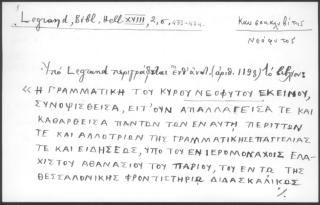 Legrand, Bibl. Hell. XVIII, 2, σ. 433-434.
Καυσοκαλυβίτης
Νεόφυτος
Ὑπὸ Legrand περιγράφεται ἐνθ' ἀνωτ. (ἀριθ. 1193) τὸ βιβλίον:
« Ἡ ΓΡΑΜΜΑΤΙΚΗ ΤΟΥ ΚΥΡΟΥ ΝΕΟΦΥΤΟΥ ΕΚΕΙΝΟΥ,
ΣΥΝΟΨΙΣΘΕΙΣΑ, ΕΙΤ' ΟΥΝ ΑΠΑΛΛΑΓΕΙΣΑ ΤΕ ΚΑΙ
ΚΑΘΑΡΘΕΙΣΑ ΠΑΝΤΩΝ ΤΩΝ ΕΝ ΑΥΤΗ ΠΕΡΙΤΤΩΝ
ΤΕ ΚΑΙ ΑΛΛΟΤΡΙΩΝ ΤΗΣ ΓΡΑΜΜΑΤΙΚΗΣ ΕΠΑΓΓΕΛΙΑΣ
ΤΕ ΚΑΙ ΕΙΔΗΣΕΩΣ, ΥΠΟ ΤΟΥ ΕΝ ΙΕΡΟΜΟΝΑΧΟΙΣ ΕΛΑ-
ΧΙΣΤΟΥ ΑΘΑΝΑΣΙΟΥ ΤΟΥ ΠΑΡΙΟΥ, ΤΟΥ ΕΝ ΤΩ ΤΗΣ
ΘΕΣΣΑΛΟΝΙΚΗΣ ΦΡΟΝΤΙΣΤΗΡΙΩ ΔΙΔΑΣΚΑΛΙΚΩΣ